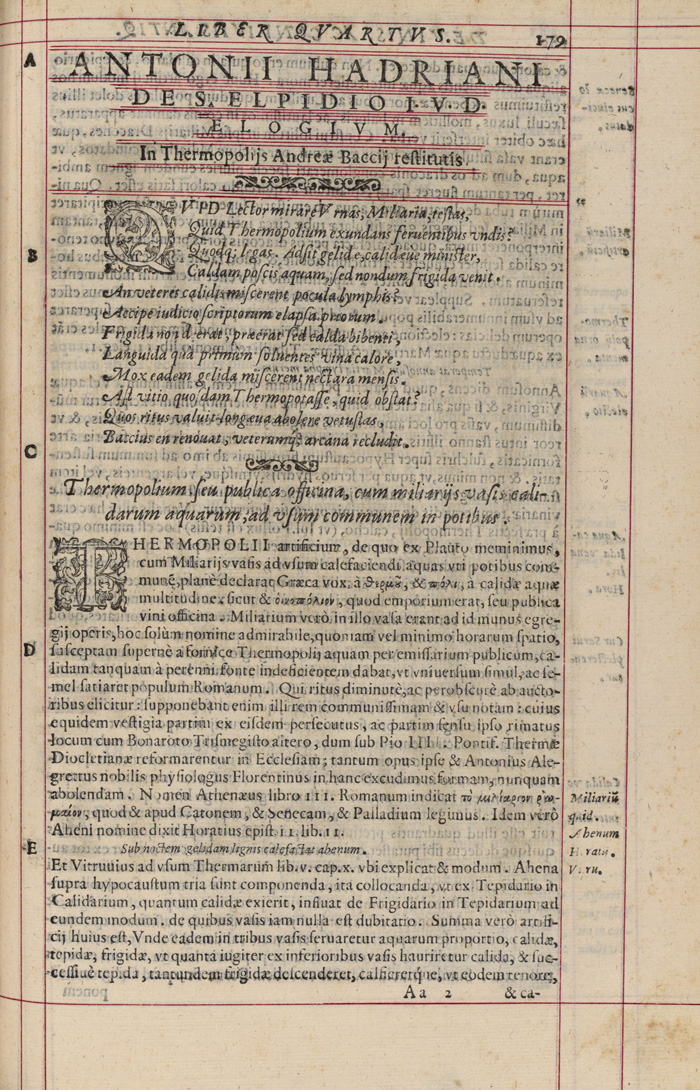 LIBER QVARTVS. 179
A
ANTONII HADRIANI
DE S. ELPIDIO I.V.D.
ELOGIVM.
In Thermopolijs Andreæ Baccij restitutis.
QVID Lector mirare Vrnas, Miliaria, testas,
Quid Thermopolium exundans feruentibus vndis?
B
Quodq; legas. Adsit gelidę, calidæue minister,
Caldam poscis aquam, sed nondum frigida venit.
An veteres calidis miscerent pocula lymphis?
Accipe iudicio scriptorum elapsa priorum.
Frigida non deerat, præerat sed calda bibenti,
Languida quà primùm soluentes vina calore,
Mox eadem gelida miscerent nectara mensis.
Ast vitio quosdam Thermopotasse, quid obstat?
Quos ritus valuit longæua abolere vetustas,
Baccius en renouat, veterumq́; arcana recludit.
C
Thermopolium, seu publica officina, cum miliarijs vasis cali-
darum aquarum, ad vsum communem in potibus.
THERMOPOLII artificium, de quo ex Plauto meminimus,
cum Miliarijs vasis ad vsum calefaciendi aquas vti potibus com-
munẽ, planè declarat Græca vox, à θερμοῦ, & πόλι, à calidæ aquæ
multitudine: sicut & οἰνοπόλιον, quod emporium erat, seu publica
vini officina. Miliarium verò in illo vasa erant ad id munus egre-
gij operis, hoc solùm nomine admirabile, quoniam vel minimo horarum spatio,
D
susceptam supernè a fornice Thermopolij aquam per emissarium publicum, ca-
lidam tanquam à perenni fonte indeficientem dabat, vt vniuersum simul, ac se-
mel satiaret populum Romanum. Qui ritus diminutè, ac perobscurè ab aucto-
ribus elicitur: supponebant enim illi rem communissimam & vsu notam: cuius
equidem vestigia partim ex eisdem persecutus, ac partim sensu ipso rimatus
locum cum Bonaroto Trismegisto altero, dum sub Pio IIII. Pontif. Thermæ
Diocletianæ reformarentur in Ecclesiam; tantum opus ipse & Antonius Ale-
grettus nobilis physiologus Florentinus in hanc excudimus formam, nunquam
abolendam. Nomen Athenæus libro III. Romanum indicat
Miliariũ
quod & apud Catonem, & Senecam, & Palladium legimus. Idem verò
quid.
Aheni nomine dixit Horatius epist. 11. lib. 11.
Ahenum
E
Sub noctem gelidam lignis calefactat ahenum.
Horatij.
Et Vitruuius ad vsum Thermarum lib. v. cap. x. vbi explicat & modum. Ahena
supra hypocaustum tria sunt componenda, ita collocanda, vt ex Tepidario in
Calidarium, quantum calidæ exierit, influat de Frigidario in Tepidarium ad
eundem modum. de quibus vasis iam nulla est dubitatio. Summa verò artifi-
cij huius est, Vnde eadem in tribus vasis seruaretur aquarum proportio, calidæ,
tepidæ, frigidæ, vt quanta iugiter ex inferioribus vasis hauriretur calida, & suc-
cessiuè tepida, tantundem frigidæ descenderet, calfieretq́ue, vt eodem tenore,
Aa 2 & ca-